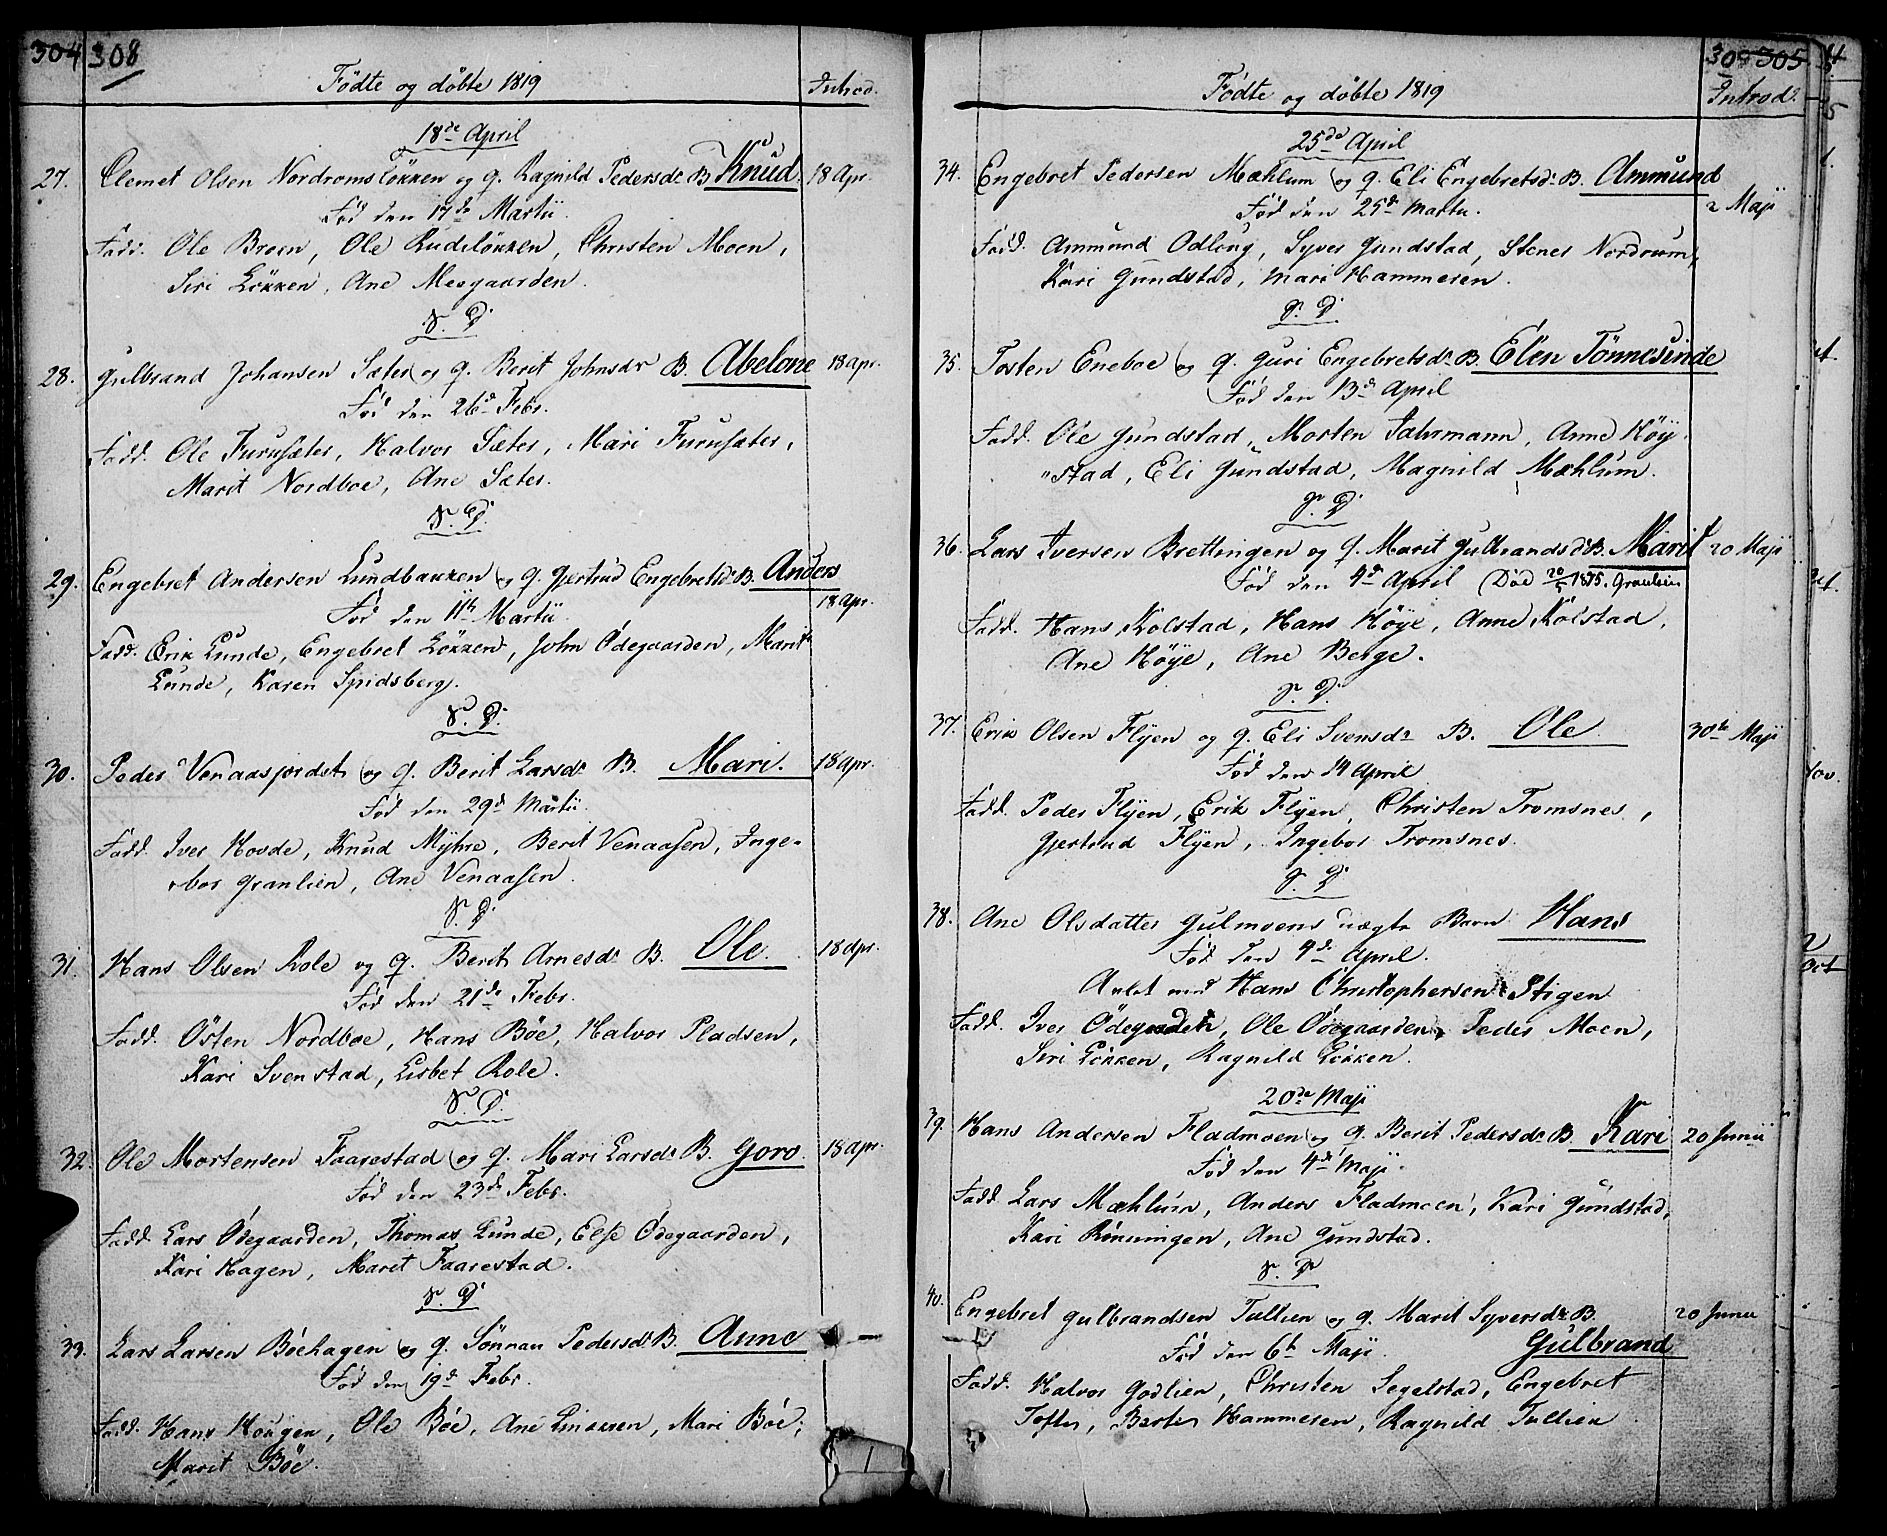 304 308
Födte og döbte 1819
Introd.
18de April
27. Clemet Olsen Nordromslökken og Q. Ragnild Pedersdr B. Knud. 18 Apr.
Föd den 17de Martii.
Fadd. Ole Breen, Ole Rudslökken, Christen Moen,
Siri Lökken, Ane Moegaarden.
S. D.
28. Gulbrand Johansen Sæter og Q. Berit Johnsdr B. Abelone 18 apr.
Föd den 26de Febr.
Fadd. Ole Furusæter, Halvor Sæter, Mari Furusæter,
Marit Nordboe, Ane Sæter.
S. D.
29. Engebret Andersen Lundbakken og Q. Gjertrud Engebretsdr B. Anders
18 Apr.
Föd den 11te Martii.
Fadd. Erik Lunde, Engebret Lökken, John Ödegaarden, Marit
Lunde, Karen Spidsberg.
S. D.
30. Peder Venaasjordet og Q. Berit Larsdr B. Mari. 18 Apr.
Föd den 29de Martii.
Fadd. Iver Hovde, Knud Myhre, Berit Venaasen, Inge-
bor Granlien, Ane Venaasen.
S. D.
31. Hans Olsen Kole og Q. Berit Arnesdr B. Ole. 18 Apr.
Föd den 21de Febr.
Fadd. Östen Nordboe, Hans Böe, Halvor Pladsen,
Kari Svenstad, Lisbet Kole.
S. D.
32. Ole Mortensen Faarestad og Q. Mari Larsdr B. Goro. 18 apr.
Föd den 23de Febr.
Fadd. Lars Ödegaarden, Thomas Lunde, Else Ödegaarden,
Kari Hagen, Marit Faarestad.
S. D.
33. Lars Larsen Böehagen og Q. Sönnau Pedersdr B. Anne
Föd den 19de Febr.
Fadd. Hans Hougen, Ole Böe, Ane Linaksen, Mari Böe,
Marit Böe.
309 305
Födte og döbte 1819
Introd.
25de April
34. Engebret Pedersen Mæhlum og Q. Eli Engebretsdr B. Ammund
2 Maji
Föd den 25de Martii.
Fadd. Ammund Odloug, Syver Gundstad, Stener Nordrum,
Kari Gundstad, Mari Hammeren.
S. D.
35. Tosten Eneboe og Q. Guri Engebretsdr B. Elen Tönnesinde
Föd den 13de April
Fadd. Ole Gundstad, Morten Fahrmann, Anne Höy-
stad, Eli Gundstad, Magnild Mæhlum.
S. D.
36. Lars Iversen Brettingen og Q. Marit Gulbrandsdr B. Marit 20 Maji
Föd den 4de April (Död 20/5 1875. Granlien
Fadd. Hans Kolstad, Hans Höye, Anne Kolstad,
Ane Höye, Ane Berge.
S. D.
37. Erik Olsen Flyen og Q. Eli Svensdr B. Ole. 30te Maji
Föd den 14 April
Fadd. Peder Flyen, Erik Flyen, Christen Tromsnes,
Gjertrud Flyen, Ingebor Tromsnes.
S. D.
38. Ane Olsdatter Gulmoens uægte Barn Hans
Föd den 4de April.
Avlet med Hans Christophersen Stigen
Fadd. Iver Ödegaarden, Ole Ödegaarden, Peder Moen,
Siri Lökken, Ragnild Lökken.
20de Maji
39. Hans Andersen Fladmoen og Q. Berit Pedersdr B. Kari 20 Junii
Föd den 4de Maji.
Fadd. Lars Mæhlum, Anders Fladmoen, Kari Gundstad,
Kari Rönningen, Ane Gundstad.
S. D.
40. Engebret Gulbrandsen Tullien og Q. Marit Syversdr B. 20 Junii
Gulbrand
Föd den 6te Maji.
Fadd. Halvor Godlien, Christen Segelstad, Engebret
Toftes, Berte Hammeren, Ragnild Tullien